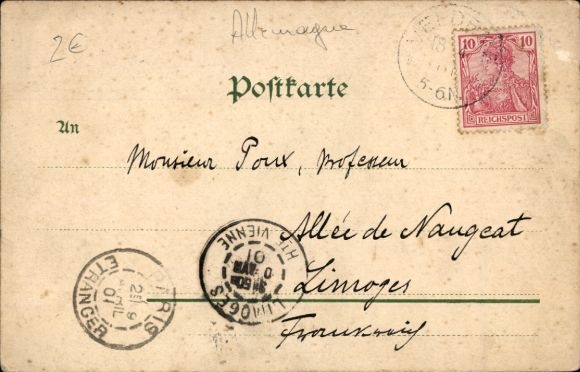 Allemagne
2€
10 10
REICHSPOST
5-6N
Postkarte
An
Monsieur Poux, professeur
Allée de Naugeat
Limoges
Frankreich
LIMOGES HTE VIENNE
01
PARIS ETRANGER
01